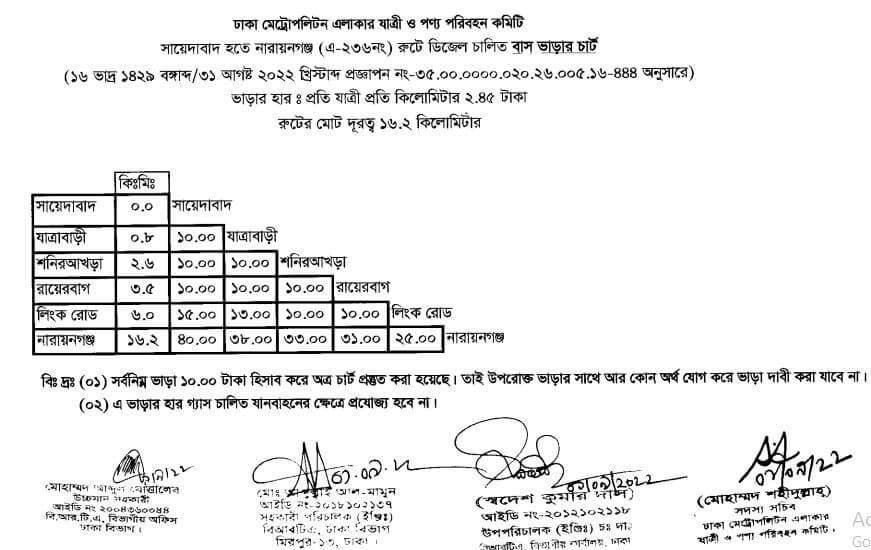 ঢাকা মেট্রোপলিটন এলাকার যাত্রী ও পণ্য পরিবহন কমিটি
সায়েদাবাদ হতে নারায়নগঞ্জ (এ-২৩৬নং) রুটে ডিজেল চালিত বাস ভাড়ার চার্ট
(১৬ ভাদ্র ১৪২৯ বঙ্গাব্দ/৩১ আগষ্ট ২০২২ খ্রিস্টাব্দ প্রজ্ঞাপন নং-৩৫.০০.০০০০.০২০.২৬.০০৫.১৬-৪৪৪ অনুসারে)
ভাড়ার হার ঃ প্রতি যাত্রী প্রতি কিলোমিটার ২.৪৫ টাকা
রুটের মোট দূরত্ব ১৬.২ কিলোমিটার
কিঃমিঃ
সায়েদাবাদ ০.০ সায়েদাবাদ
যাত্রাবাড়ী ০.৮ ১০.০০ যাত্রাবাড়ী
শনিরআখড়া ২.৬ ১০.০০ ১০.০০ শনিরআখড়া
রায়েরবাগ ৩.৫ ১০.০০ ১০.০০ ১০.০০ রায়েরবাগ
লিংক রোড ৬.০ ১৫.০০ ১৩.০০ ১০.০০ ১০.০০ লিংক রোড
নারায়নগঞ্জ ১৬.২ ৪০.০০ ৩৮.০০ ৩৩.০০ ৩১.০০ ২৫.০০ নারায়নগঞ্জ
বিঃ দ্রঃ (০১) সর্বনিম্ন ভাড়া ১০.০০ টাকা হিসাব করে অত্র চার্ট প্রস্তুত করা হয়েছে। তাই উপরোক্ত ভাড়ার সাথে আর কোন অর্থ যোগ করে ভাড়া দাবী করা যাবে না।
(০২) এ ভাড়ার হার গ্যাস চালিত যানবাহনের ক্ষেত্রে প্রযোজ্য হবে না।
মোহাম্মদ আব্দুল
উচ্চমান সহকারী
আইডি নং-২০০৪৩৬০০৪৪
বি,আর,টি,এ, বিভাগীয় অফিস
ঢাকা বিভাগ।
মোঃ আল-মামুন
আইডি নং-২০১৮১০২১৩৭
সহকারী পরিচালক (ইঞ্জিঃ)
বিআরটিএ, ঢাকা বিভাগ
মিরপুর-১৩, ঢাকা।
০১/০৯/২০২২
(স্বদেশ কুমার দাস)
আইডি নং-২০১২১০২১১৮
উপপরিচালক (ইঞ্জিঃ) চঃ দাঃ
বিআরটিএ, বিভাগীয় কার্যালয়, ঢাকা
(মোহাম্মদ শহীদুল্লাহ)
সদস্য সচিব
ঢাকা মেট্রোপলিটন এলাকার
যাত্রী ও পণ্য পরিবহন কমিটি।